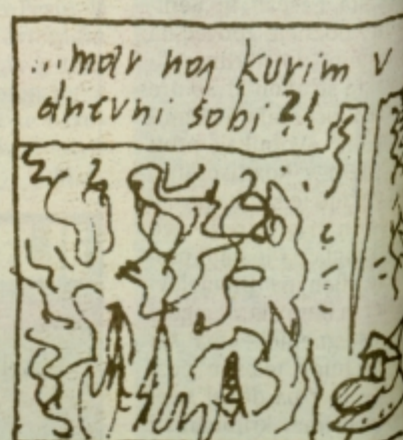 ...mar naj kurim v
dnevni sobi?!